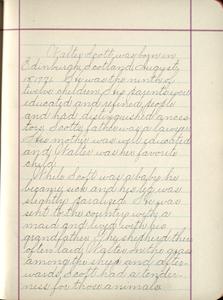 Walter Scott was born in
Edinburgh, Scotland August,
15 1771. He was the ninth of
twelve children. His parents were
educated and refined people
and had distinguished ances-
tors. Scott's father was a lawyer.
His mother was well educated
and Walter was her favorite
child.
While Scott was a baby he
became sick and his leg was
slightly paralized. He was
sent to the country with a
maid and lived with his
grandfather. The shepherd then
often laid Walter on the grass
among the sheep and after-
wards Scott had a tender-
ness for those animals.